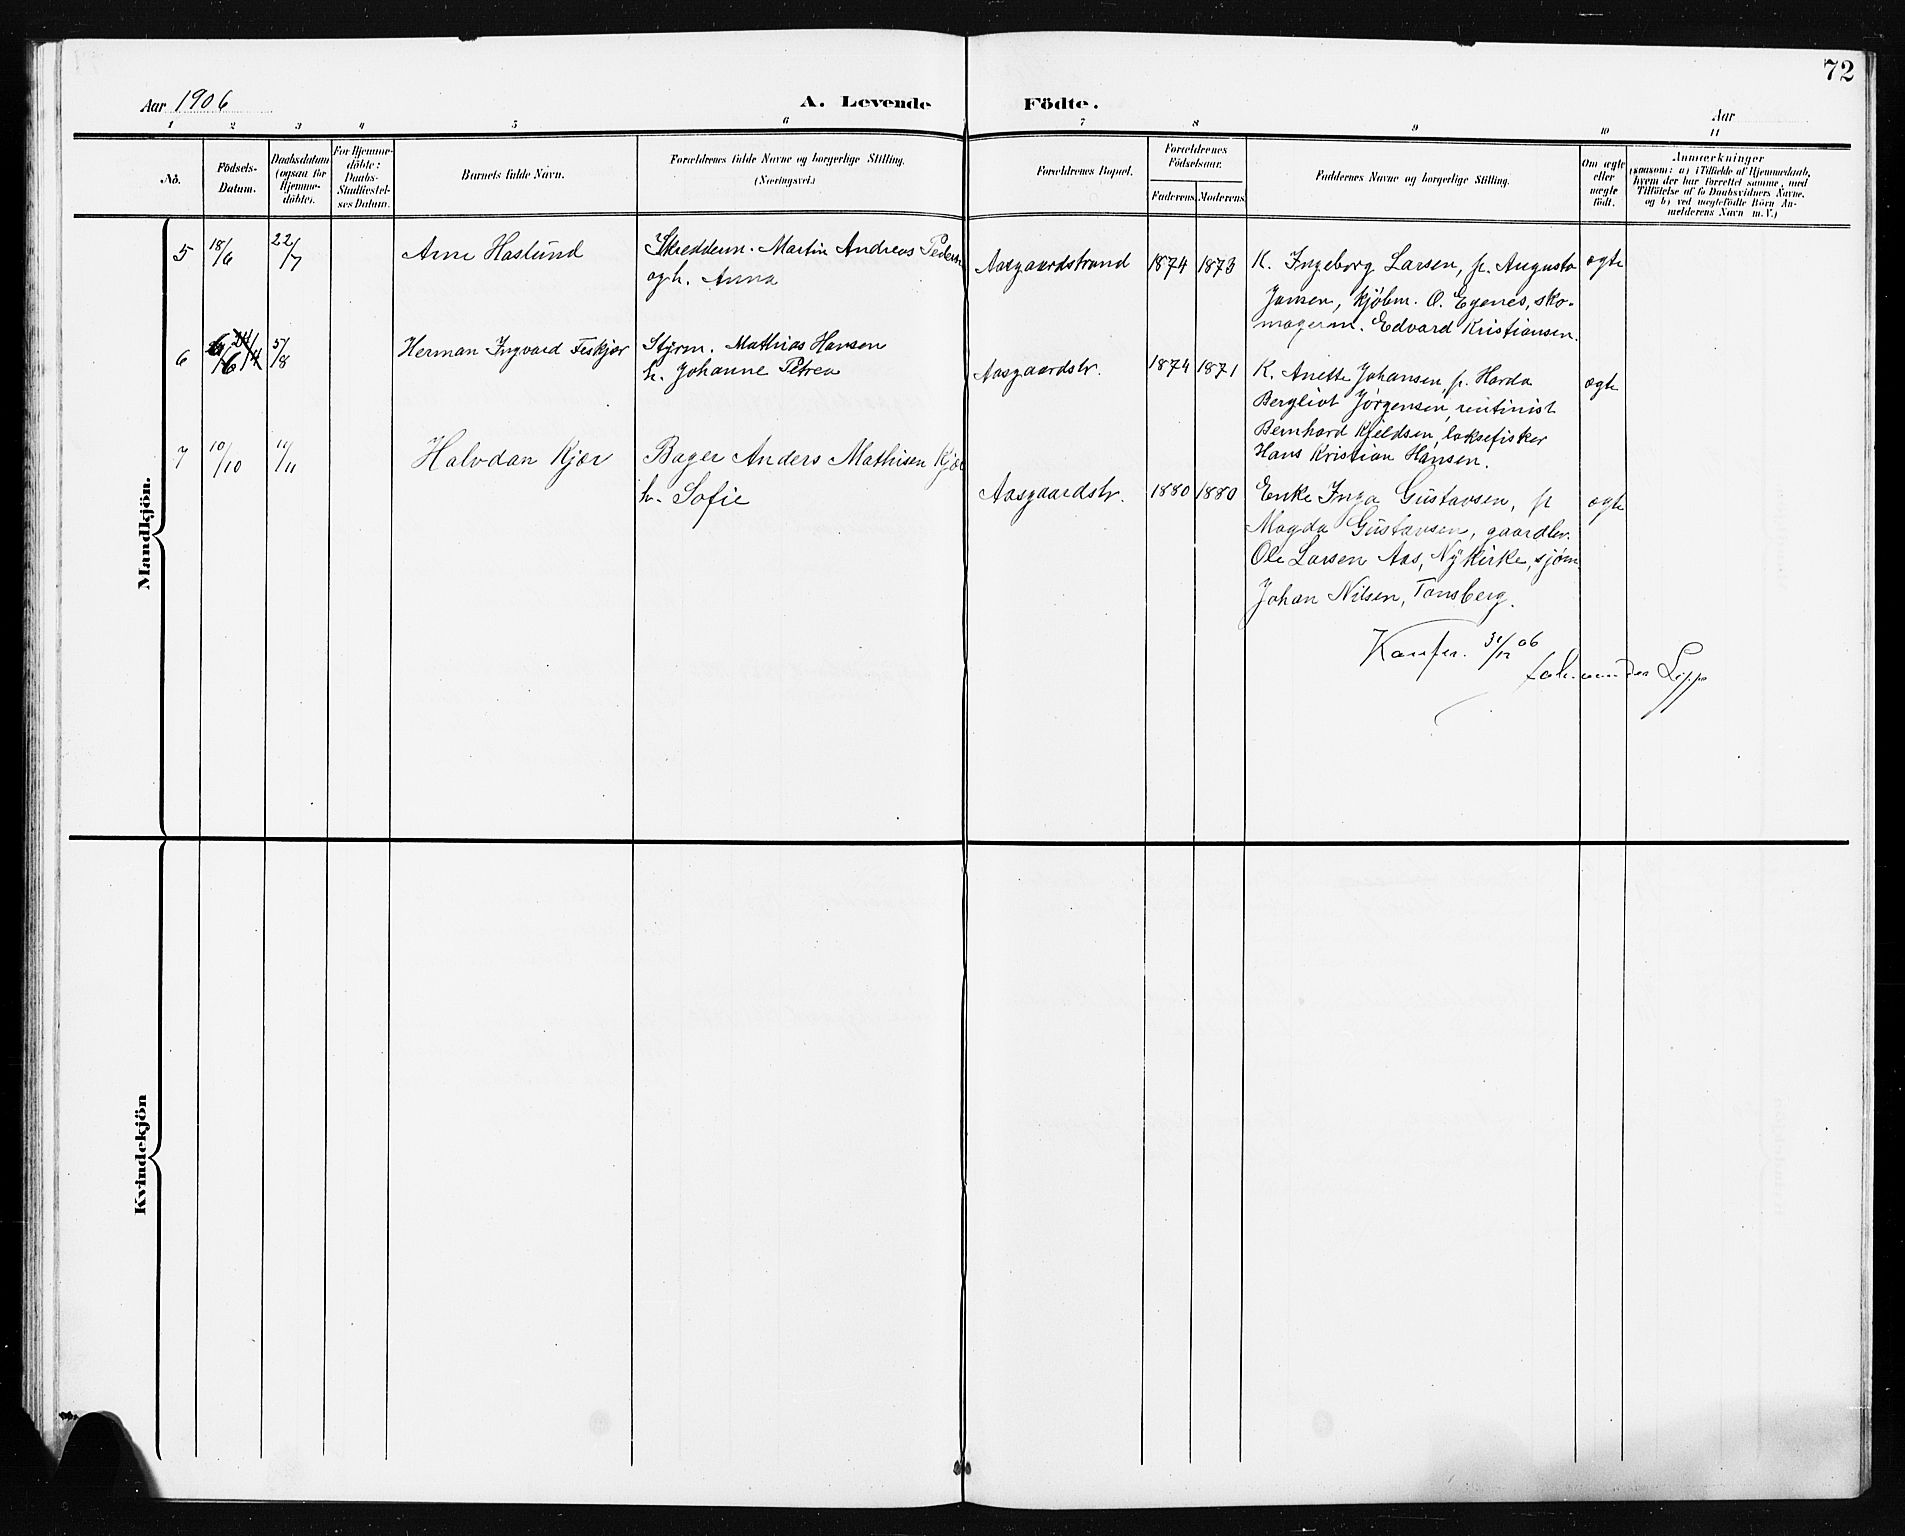 72
Aar 1906
A. Levende Födte.
Aar
1 2 3 4 5 6 7 8 9 10 11
No.
Födsels-
Datum.
Daabsdatum
(ogsaa for
Hjemme-
döbte).
For Hjemme-
döbte:
Daabs-
Stadfæstel-
ses Datum.
Barnets fulde Navn.
Forældrenes fulde Navne og borgerlige Stilling.
(Næringsvei.)
Forældrenes Bopæl.
Forældrenes
Födselsaar.
Faderens. Moderens.
Faddernes Navne og borgerlige Stilling.
Om ægte
eller
uægte
födt.
Anmærkninger
(saasom: a) i Tilfælde af Hjemmedaab,
hvem der har forrettet samme, med
Tilföielse af to Daabsvidners Navne,
og b) ved uægtefödte Börn An-
melderens Navn m. V.)
Mandkjön.
5 18/6 22/7 Arne Haslund
Skredderm. Martin Andreas Pedersen
og h. Anna
Aasgaardstrand 1874 1873
K. Ingeborg Larsen, p. Augusta
Jansen, kjøbm. O. Egenes, sko-
magerm. Edvard Kristiansen.
ægte
6 5/8 Herman Ingvard Feskjær
Styrm. Mathias Hansen
h. Johanne Petrea
Aasgaardstr. 1874 1871
K. Anette Johansen, p. Harda
Bergliot Jørgensen, rentinist
Bernhard Kjeldsen, laksefisker
Hans Kristian Hansen.
ægte
7 10/10 11/11 Halvdan Kjær
Bager Anders Mathisen Kjær
h. Sofie
Aasgaardstr. 1880 1880
Enke Inga Gustavsen, p
Magda Gustavsen, gaardbr.
Ole Larsen Aas, Nykirke, sjøm.
Johan Nilsen, Tønsberg.
ægte
Konfer. 31/12 06
Kvindekjön